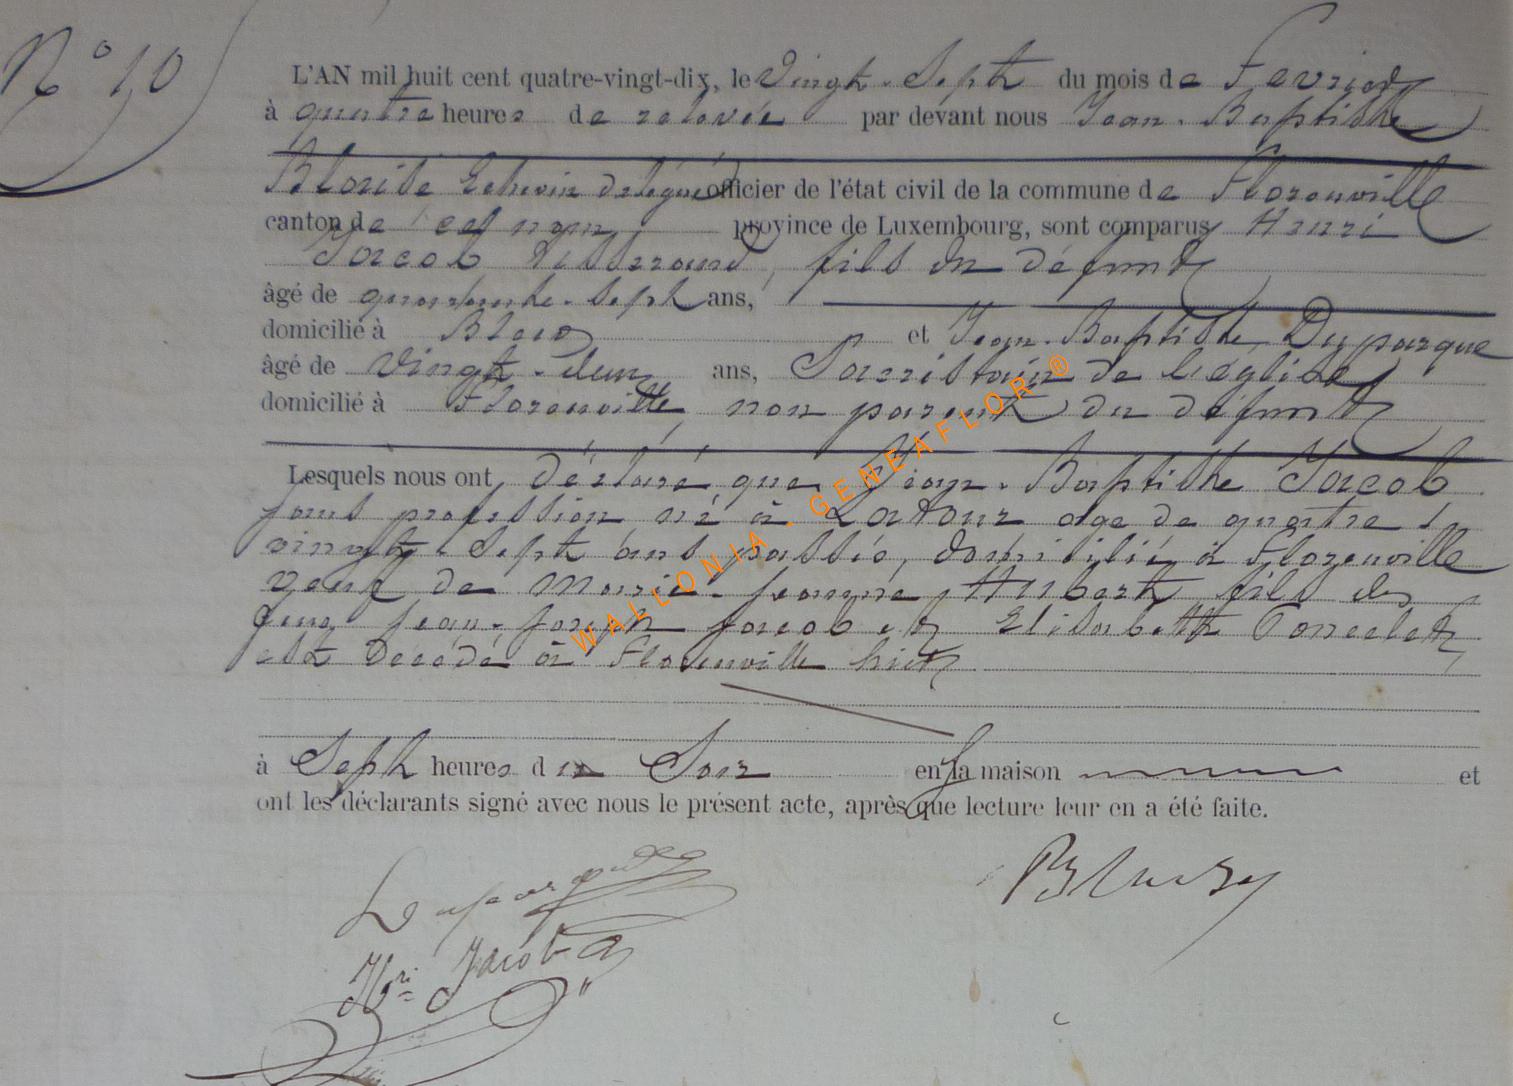 N° 10
L'AN mil huit cent quatre-vingt-dix, le Vingt-Sept du mois de Fevrier
à quatre heures de relevée par devant nous Jean-Baptiste
Echevin délégué officier de l'état civil de la commune de Florenville
canton de ce nom, province de Luxembourg, sont comparus Henri
Jacob Tisserand, fils du défunt
âgé de quarante-sept ans,
domicilié à et Jean-Baptiste Duparque
âgé de Vingt-deux ans, Sacristain de l'église
domicilié à Florenville, non parent du défunt
Lesquels nous ont déclaré que Jean-Baptiste Jacob
sans profession né à Latour age de quatre
vingt-Sept ans passés, domicilié à Florenville
veuf de Marie-Jeanne Hubert fils des
feus Jean-Joseph Jacob et Elisabeth Poncelet
est décédé à Florenville hier
à Sept heures du Soir en sa maison et
ont les déclarants signé avec nous le présent acte, après que lecture leur en a été faite.
Duparque
Hri Jacob
WALLONIA - GENEAFLOR ®